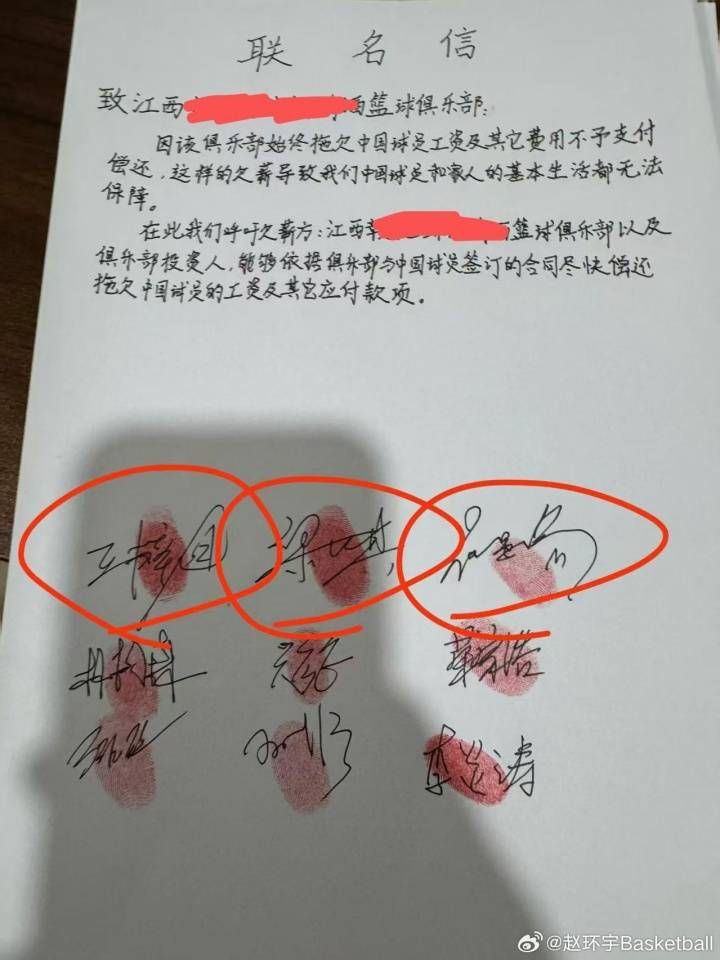 联名信
致江西 篮球俱乐部:
因该俱乐部始终拖欠中国球员工资及其它费用不予支付
偿还,这样的欠薪导致我们中国球员和家人的基本生活都无法
保障。
在此我们呼吁欠薪方:江西 篮球俱乐部以及
俱乐部投资人,能够依据俱乐部与中国球员签订的合同尽快偿还
拖欠中国球员的工资及其它应付款项。
李运涛
@赵环宇Basketball